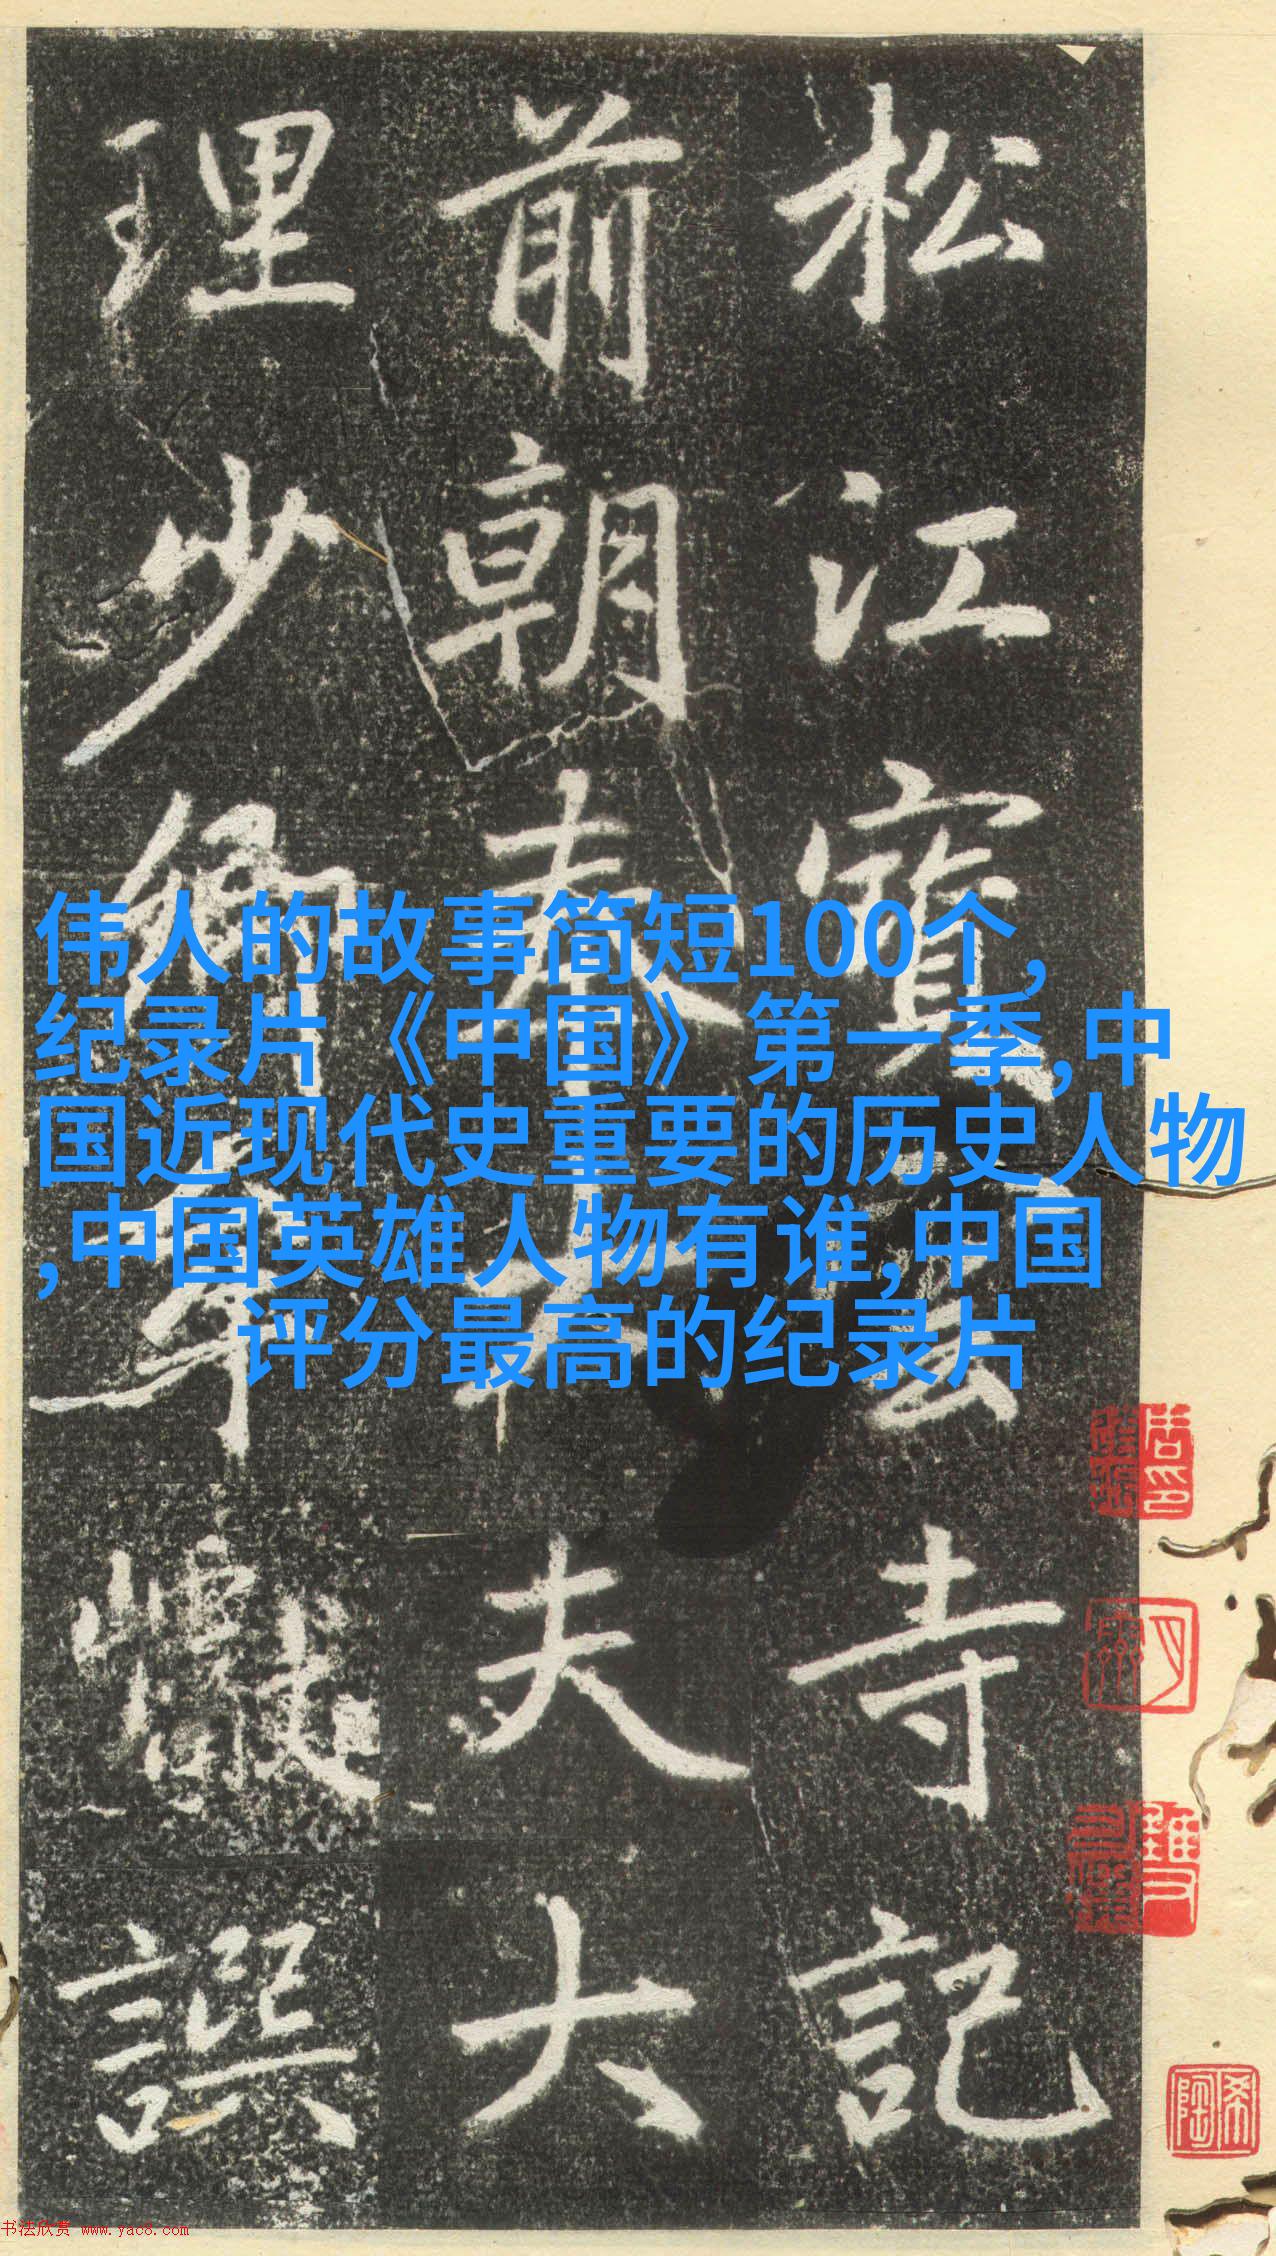 松江寶雲寺記
前朝奉大夫大
理少卿牟譔
伟人的故事简短100个,
纪录片《中国》第一季,中
国近现代史重要的历史人物
,中国英雄人物有谁,中国
评分最高的纪录片
希陶
书法欣赏 www.yac8.com